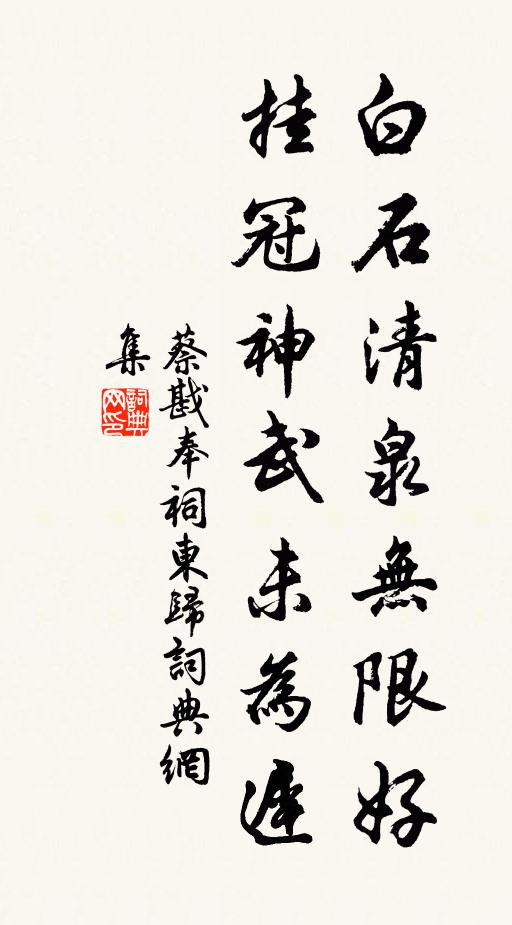 白石清泉無限好
挂冠神武未為遲
蔡戡奉祠東歸詞典網
集
詞典
网印